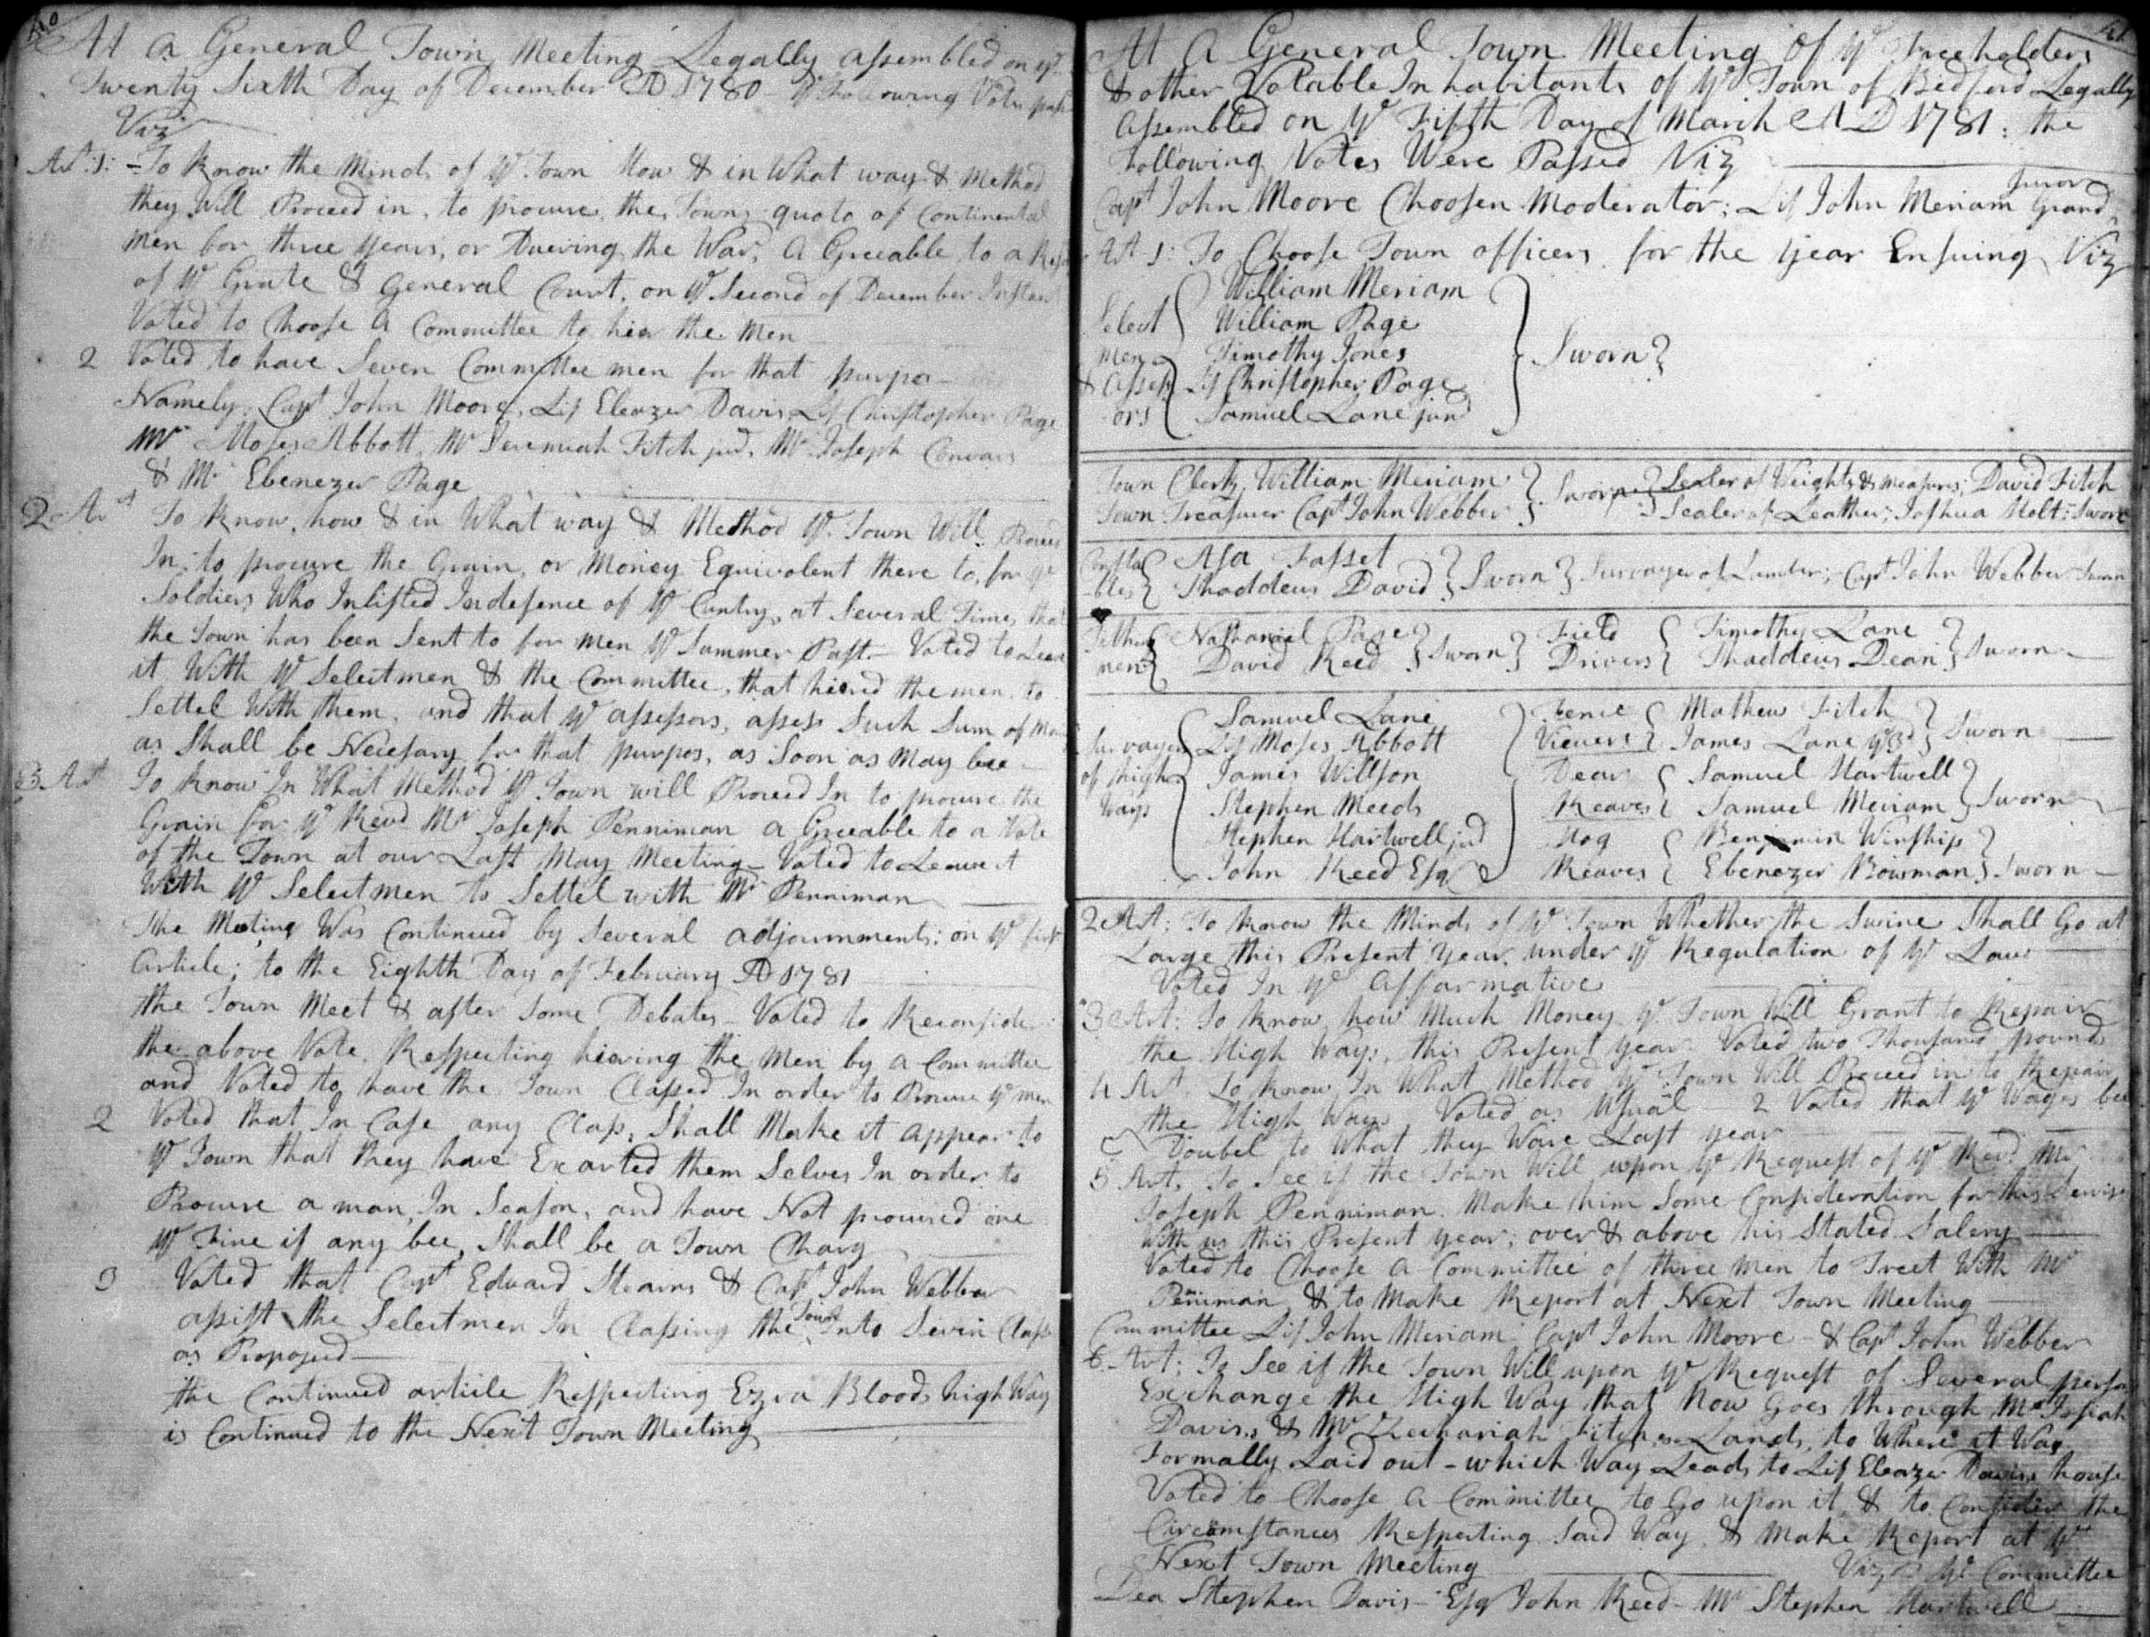 At a General Town Meeting Legally assembled on ye
Twenty Sixth Day of December AD 1780 ye Following Votes past
Viz
Art: 1: To know the Minds of ye Town How & in What way & Method
they Will Proceed in, to procure the Towns quoto of Continental
Men for three years, or Duering the War, A Greeable to a
of ye Grate & General Court, on ye Second of December Instant
Voted to Choose a Committee to hier the Men
2 Voted to have Seven Committee men for that purpos
Namely, Capt John Moore, Lit Eleazer Davis Lit Christopher Page
Mr Moses Abbott, Mr Jeremiah Fitch jud, Mr Joseph Convars
& Mr Ebenezer Page
2 Art To know, how & in What way & Method ye Town Will Proceed
In, to procure the Grain, or Money Equivolent there to, for ye
Soldiers Who Inlisted Indefence of ye Cuntry, at Several Times that
the Town has been Sent to for men ye Summer Past - Voted to Leave
it With ye Selectmen & the Committee, that hiered the men to
Settel With them, and that ye assessors, assess Such Sum of
as Shall be Necesary for that purpos, as Soon as May bee
3 Art To know In What Method ye Town will Proceed In to procure the
Grain for ye Revd Mr Joseph Penniman a Greeable to a Vote
of the Town at our Last May Meeting - Voted to Leave it
With ye Selectmen to Settel with Mr Penniman
The Meeting Was Continued by Several adjournments: on ye first
Article; to the Eighth Day of February AD 1781
the Town Meet & after Some Debates - Voted to Reconsider
the above Vote Respecting hiering the Men by a Committee
and Voted to have the Town Classed In order to Procure ye men
2 Voted that In Case any Class, Shall Make it appear to
ye Town that they have Exarted them Selves In order to
Procure a man, In Season, and have Not procured one
ye Fine if any bee, Shall be a Town Charg
3 Voted that Capt Edward Stearns & Capt John Webber
assist the Selectmen In Classing the Town Into Seven Classes
as Proposed
the Continued article Respecting Ezra Bloods high Way
is Continued to the Next Town Meeting
At a General Town Meeting of ye Freeholders
& other Votable Inhabitants of ye Town of Bedford Legally
Assembled on ye Fifth Day of March AD 1781: the
Following Votes Were Passed Viz
Capt John Moore Choosen Moderator; Lit John Meriam Grand juror
Art 1: To Choose Town officers for the year Ensuing Viz
Select men & Assessors William Meriam
William Page
Timothy Jones
Lit Christopher Page
Samuel Lane jund
Sworn
Town Clerk, William Meriam Sworn Sealer of Weights & measures; David Fitch
Town Treasurer Capt John Webber Sealer of Leather; Joshua Holt: Sworn
Constables Asa Fasset
Thaddeus David Sworn Survayer of Lumber; Capt John Webber Sworn
Tithing men Nathaniel Page
David Reed Sworn Field Drivers Timothy Lane
Thaddeus Dean Sworn
Survayers of high Ways Samuel Lane
Lit Moses Abbott
James Willson
Stephen Meeds
Stephen Hartwell jud
John Reed Esq
Fence Viewers Mathew Fitch
James Lane ye 3d Sworn
Dear Reaves Samuel Hartwell
Samuel Meriam Sworn
Hog Reaves Benjamin Winship
Ebenezer Bowman Sworn
2 Art: To know the Minds of ye Town Whether the Swine Shall Go at
Large this Present year, under ye Regulation of ye Law
Voted In ye affarmative
3 Art: To know how Much Money ye Town Will Grant to Repair
the High Ways, this Present year Voted two Thousand pounds
4 Art To know In What Method ye Town Will Proceed in to Repair
the High Ways Voted as Usual - 2 Voted that ye Wages bee
Doubel to What they Ware Last year
5 Art, To See if the Town Will upon ye Request of ye Revd Mr
Joseph Penniman Make him Some Consideration for his Servise
With us this Present year; over & above his Stated Salery
Voted to Choose a Committee of three men to Treet With Mr
Peniman, & to Make Report at Next Town Meeting
Committee Lit John Meriam Capt John Moore - & Capt John Webber
6 Art: To See if the Town Will upon ye Request of Several persons
Exchange the High Way that Now Goes through Mr Josiah
Davis,s & Mr Zechariah Fitch,s Lands, to Where it Was
Formally Laid out - which Way Leads to Lit Eleazer Daviss house
Voted to Choose a Committee to Go upon it & to Consider the
Circumstances Respecting Said Way & Make Report at ye
Next Town Meeting Viz ye Committee
Dea Stephen Davis - Esq John Reed - Mr Stephen Hartwell